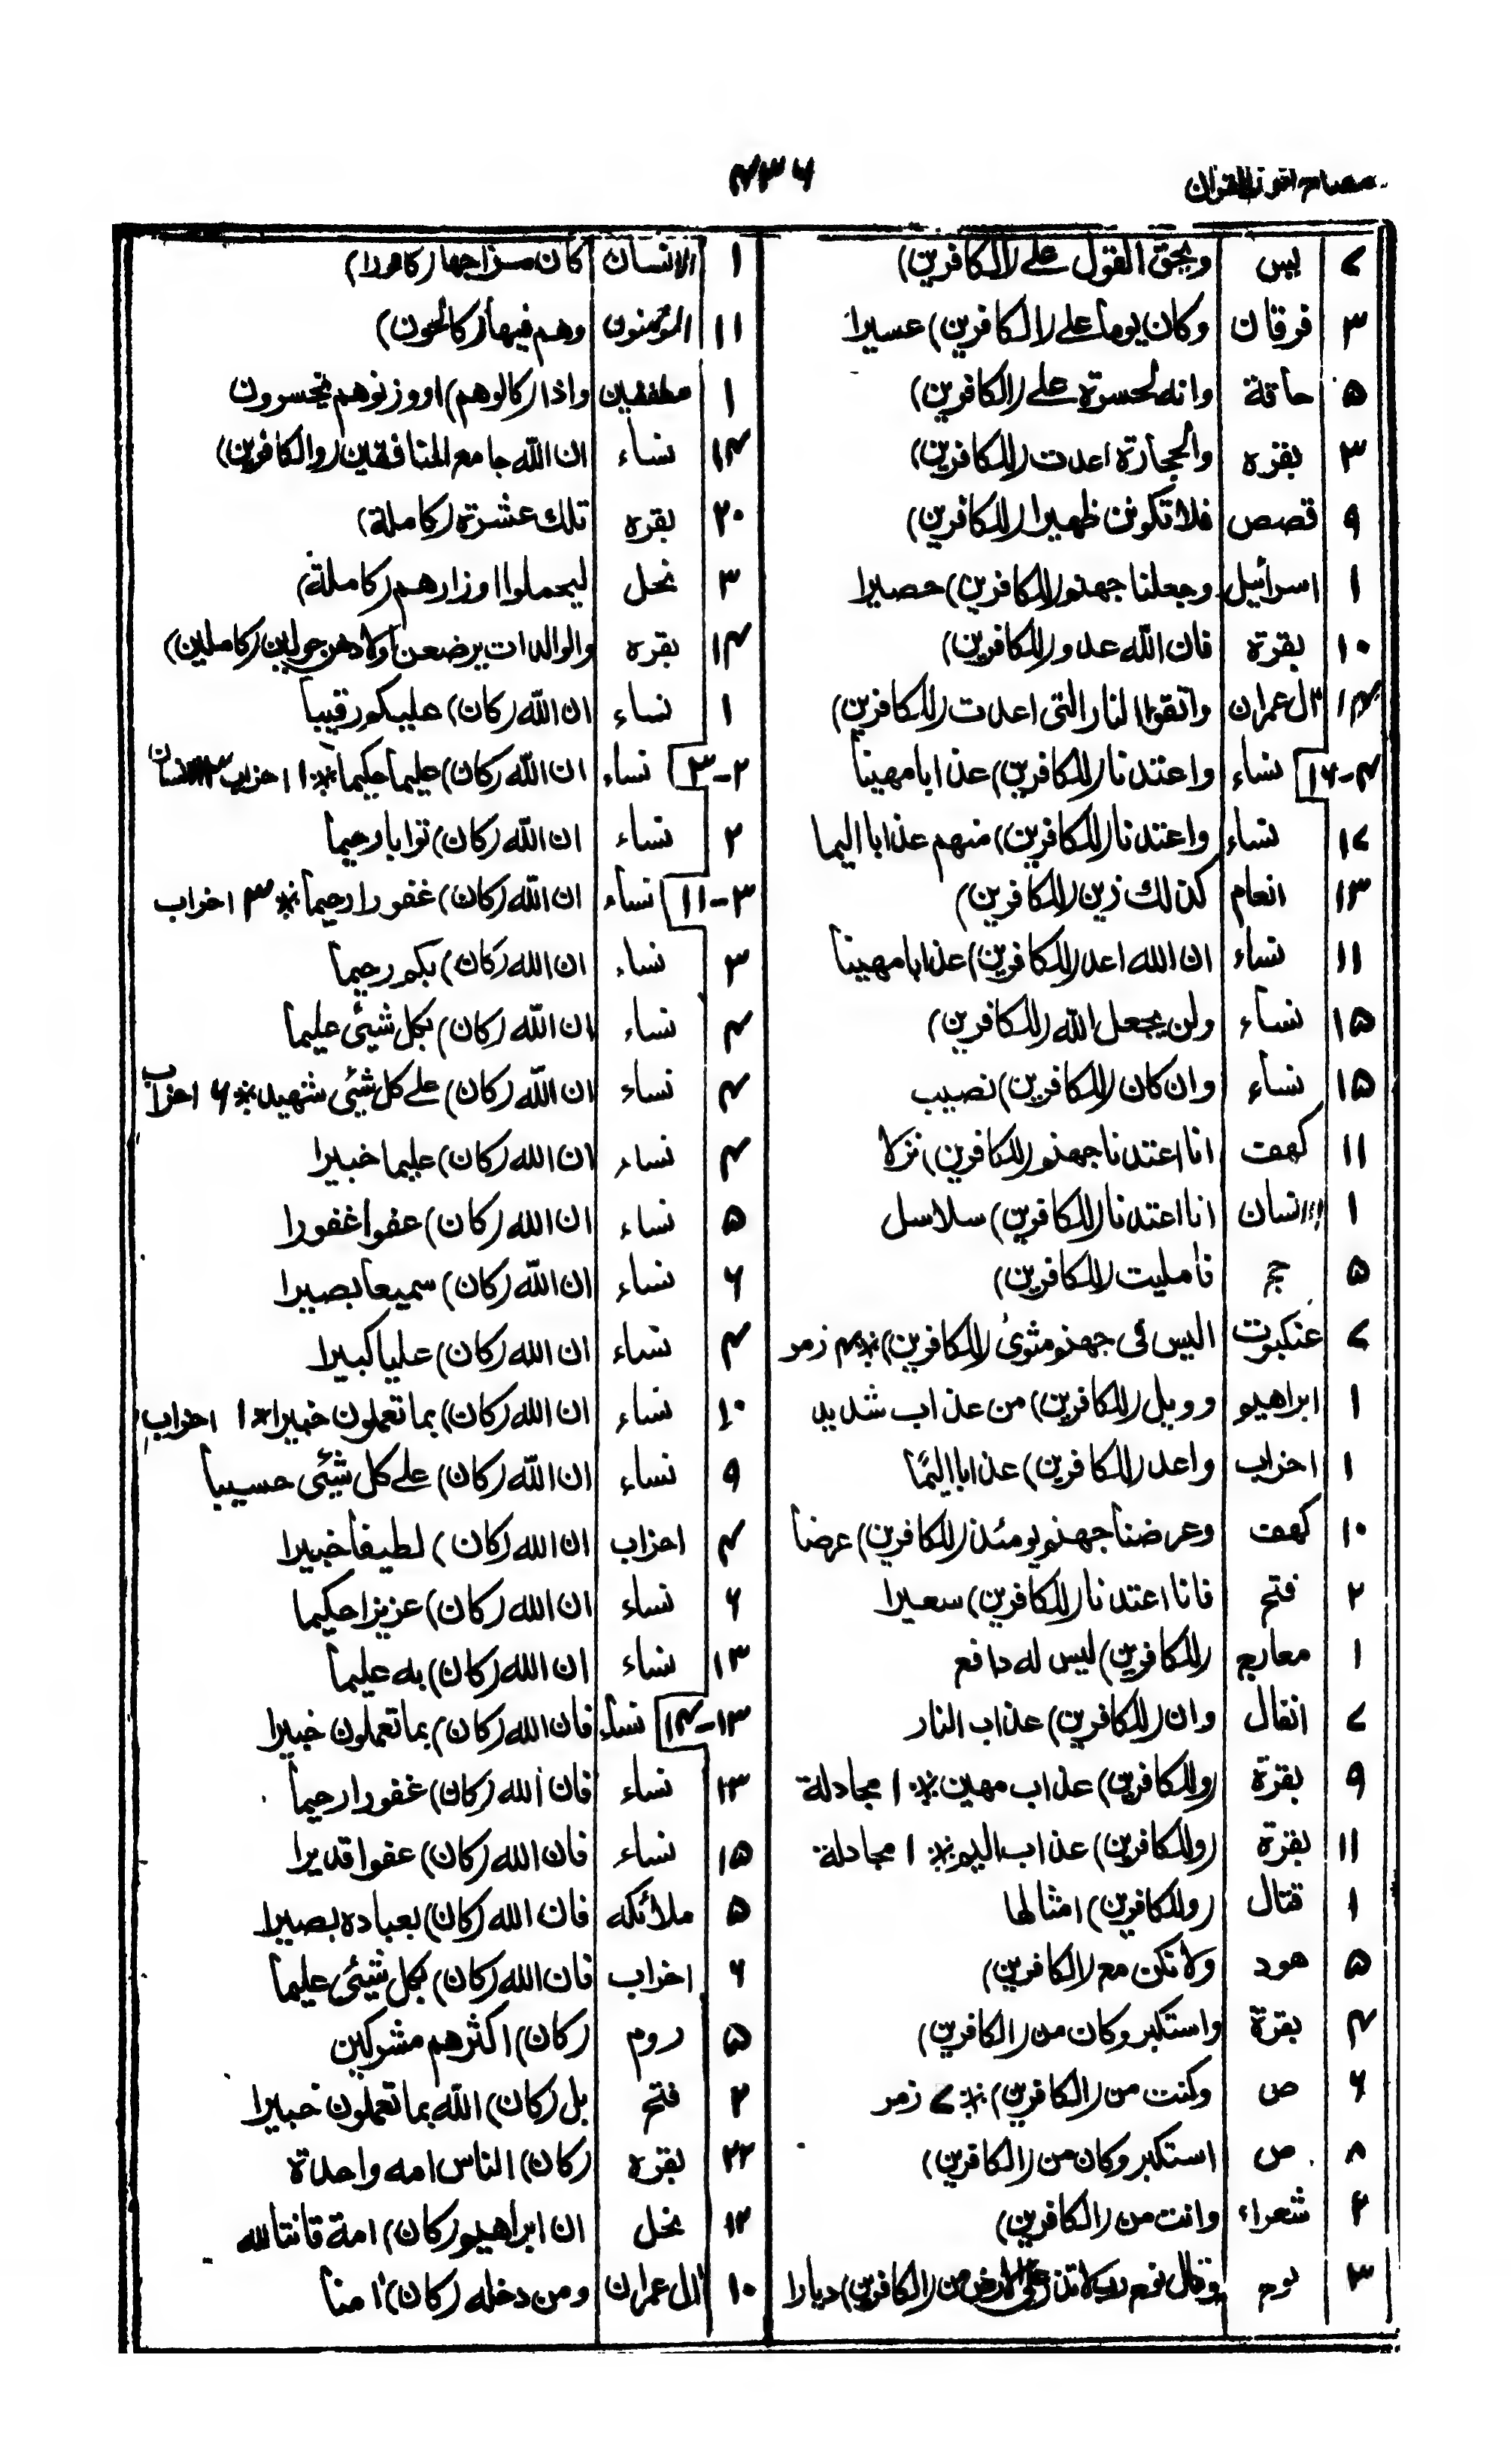 ۴۳۶
۷ یس ویحق القول علے (الکافرین)
۳ فرقان وکان یوماً علے (الکافرین) عسیرا
۵ حاقة وانه لحسرة علے (الکافرین)
۳ بقره والحجارة اعدت (للکافرین)
۹ قصص فلا تکونن ظهیرا (للکافرین)
۱ اسرائیل وجعلنا جهنم (للکافرین) حصیرا
۱۰ بقرة فان الله عدو (للکافرین)
۱۴ آل عمران واتقوا النار التی اعدت (للکافرین)
۴-۱۶ نساء واعتدنا (للکافرین) عذابا مهیناً
۱۷ نساء واعتدنا (للکافرین) منهم عذابا الیما
۱۳ انعام کذلک زین (للکافرین)
۱۱ نساء ان الله اعد (للکافرین) عذابا مهیناً
۱۵ نساء ولن یجعل الله (للکافرین)
۱۵ نساء وان کان (للکافرین) نصیب
۱۱ کهف انا اعتدنا جهنم (للکافرین) نزلا
۱ انسان انا اعتدنا (للکافرین) سلاسل
۵ حج فأملیت (للکافرین)
۷ عنکبوت الیس فی جهنم مثویً (للکافرین) * ۴ زمر
۱ ابراهیم وویل (للکافرین) من عذاب شدید
۱ احزاب واعد (للکافرین) عذابا الیمًا
۱۰ کهف وعرضنا جهنم یومئذ (للکافرین) عرضاً
۲ فتح فانا اعتدنا (للکافرین) سعیرا
۱ معارج (للکافرین) لیس له دافع
۷ انفال وان (للکافرین) عذاب النار
۹ بقرة (وللکافرین) عذاب مهین * ۱ مجادلة
۱۱ بقرة (وللکافرین) عذاب الیم * ۱ مجادلة
۱ قتال (وللکافرین) امثالها
۵ هود ولا تکن مع (الکافرین)
۴ بقرة واستکبر وکان من (الکافرین)
۶ ص وکنت من (الکافرین) * ۷ زمر
۸ ص استکبر وکان من (الکافرین)
۲ شعراء وانت من (الکافرین)
۳ نوح وقال نوح رب لا تذر علی الارض من (الکافرین) دیارا
۱ الانسان کان مزاجها (کافورا)
۱۱ المؤمنون وهم فیها (کالحون)
۱ مطففین واذا (کالوهم) او وزنوهم یخسرون
۱۴ نساء ان الله جامع المنافقین (والکافرین)
۲۰ بقره تلک عشرة (کاملة)
۳ نحل لیحملوا اوزارهم (کاملة)
۱۴ بقره والوالدات یرضعن اولادهن حولین (کاملین)
۱ نساء ان الله (کان) علیکم رقیباً
۲-۳ نساء ان الله (کان) علیماً حکیماً * ۱ احزاب
۲ نساء ان الله (کان) توابا رحیماً
۳-۱۱ نساء ان الله (کان) غفورا رحیماً * ۳ احزاب
۳ نساء ان الله (کان) بکم رحیماً
۴ نساء ان الله (کان) بکل شیئی علیماً
۴ نساء ان الله (کان) علے کل شیئی شهید * ۶ احزاب
۴ نساء ان الله (کان) علیما خبیرا
۵ نساء ان الله (کان) عفوا غفورا
۶ نساء ان الله (کان) سمیعاً بصیرا
۴ نساء ان الله (کان) علیا کبیرا
۱۰ نساء ان الله (کان) بما تعملون خبیرا * ۱ احزاب
۹ نساء ان الله (کان) علے کل شیئی حسیباً
۴ احزاب ان الله (کان) لطیفاً خبیرا
۶ نساء ان الله (کان) عزیزا حکیما
۱۳ نساء ان الله (کان) به علیماً
۱۳-۱۴ نساء فان الله (کان) بما تعملون خبیرا
۱۳ نساء فان الله (کان) غفورا رحیماً
۱۵ نساء فان الله (کان) عفوا قدیرا
۵ ملائکه فان الله (کان) بعباده بصیرا
۶ احزاب فان الله (کان) بکل شیئی علیماً
۵ روم (کان) اکثرهم مشرکین
۲ فتح بل (کان) الله بما تعملون خبیرا
۲۲ بقره (کان) الناس امه واحدة
۱۲ نحل ان ابراهیم (کان) امة قانتا لله
۱۰ آل عمران ومن دخله (کان) اٰمناً